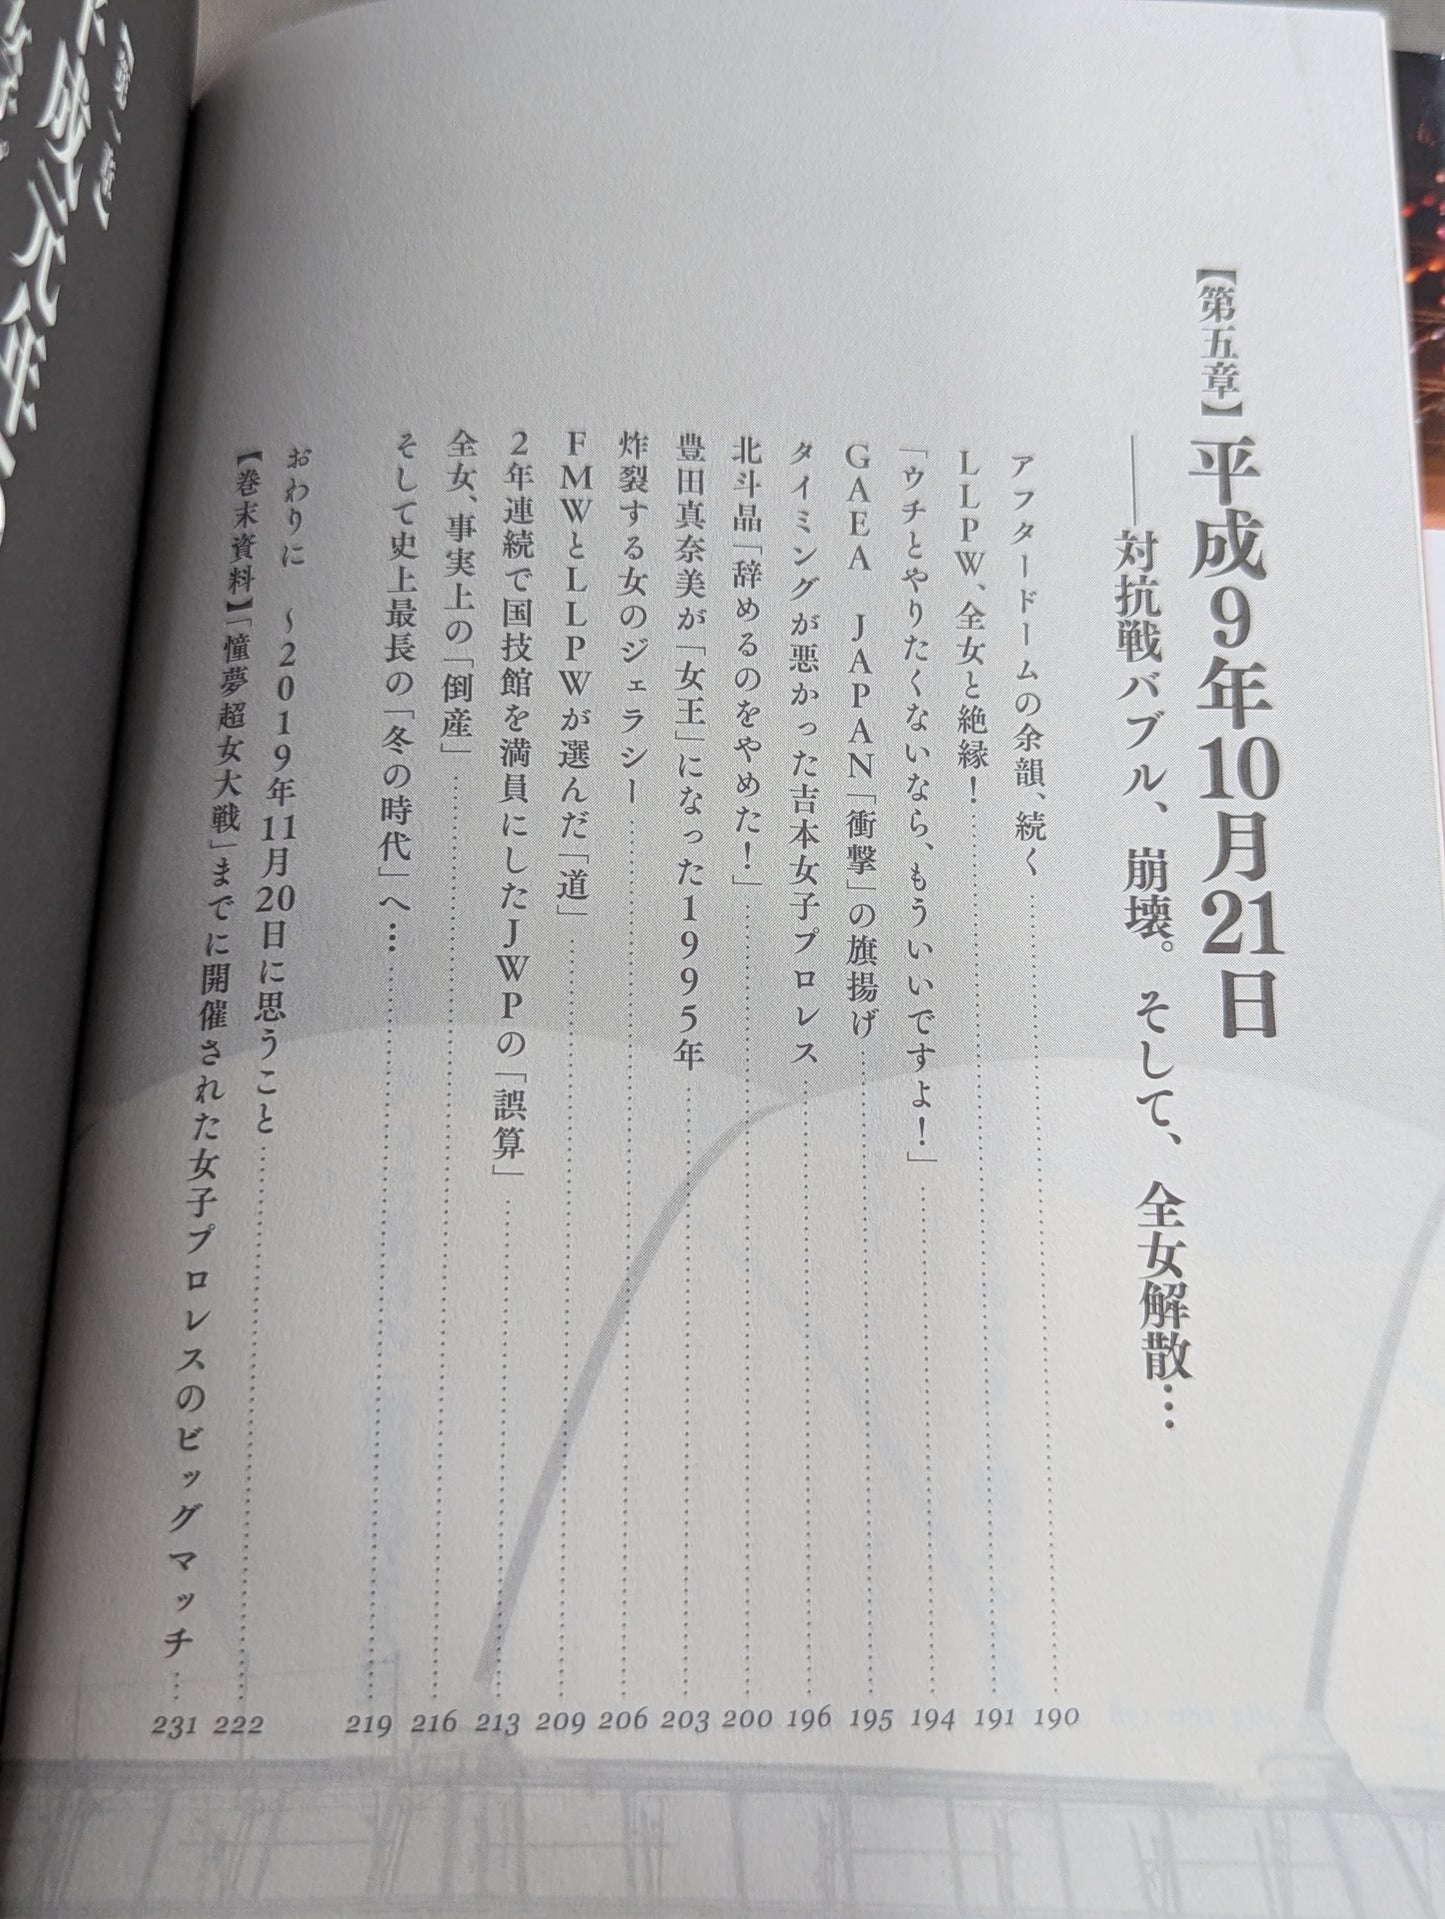 【第五章】平成9年10月21日
――対抗戦バブル、崩壊。そして、全女解散…
アフタードームの余韻、続く 190
LLPW、全女と絶縁！ 191
「ウチとやりたくないなら、もういいですよ！」 194
GAEA JAPAN「衝撃」の旗揚げ 195
タイミングが悪かった吉本女子プロレス 196
北斗晶「辞めるのをやめた！」 200
豊田真奈美が「女王」になった1995年 203
炸裂する女のジェラシー 206
FMWとLLPWが選んだ「道」 209
2年連続で国技館を満員にしたJWPの「誤算」 213
全女、事実上の「倒産」 216
そして史上最長の「冬の時代」へ… 219
おわりに ～2019年11月20日に思うこと 222
【巻末資料】「憧夢超女大戦」までに開催された女子プロレスのビッグマッチ 231